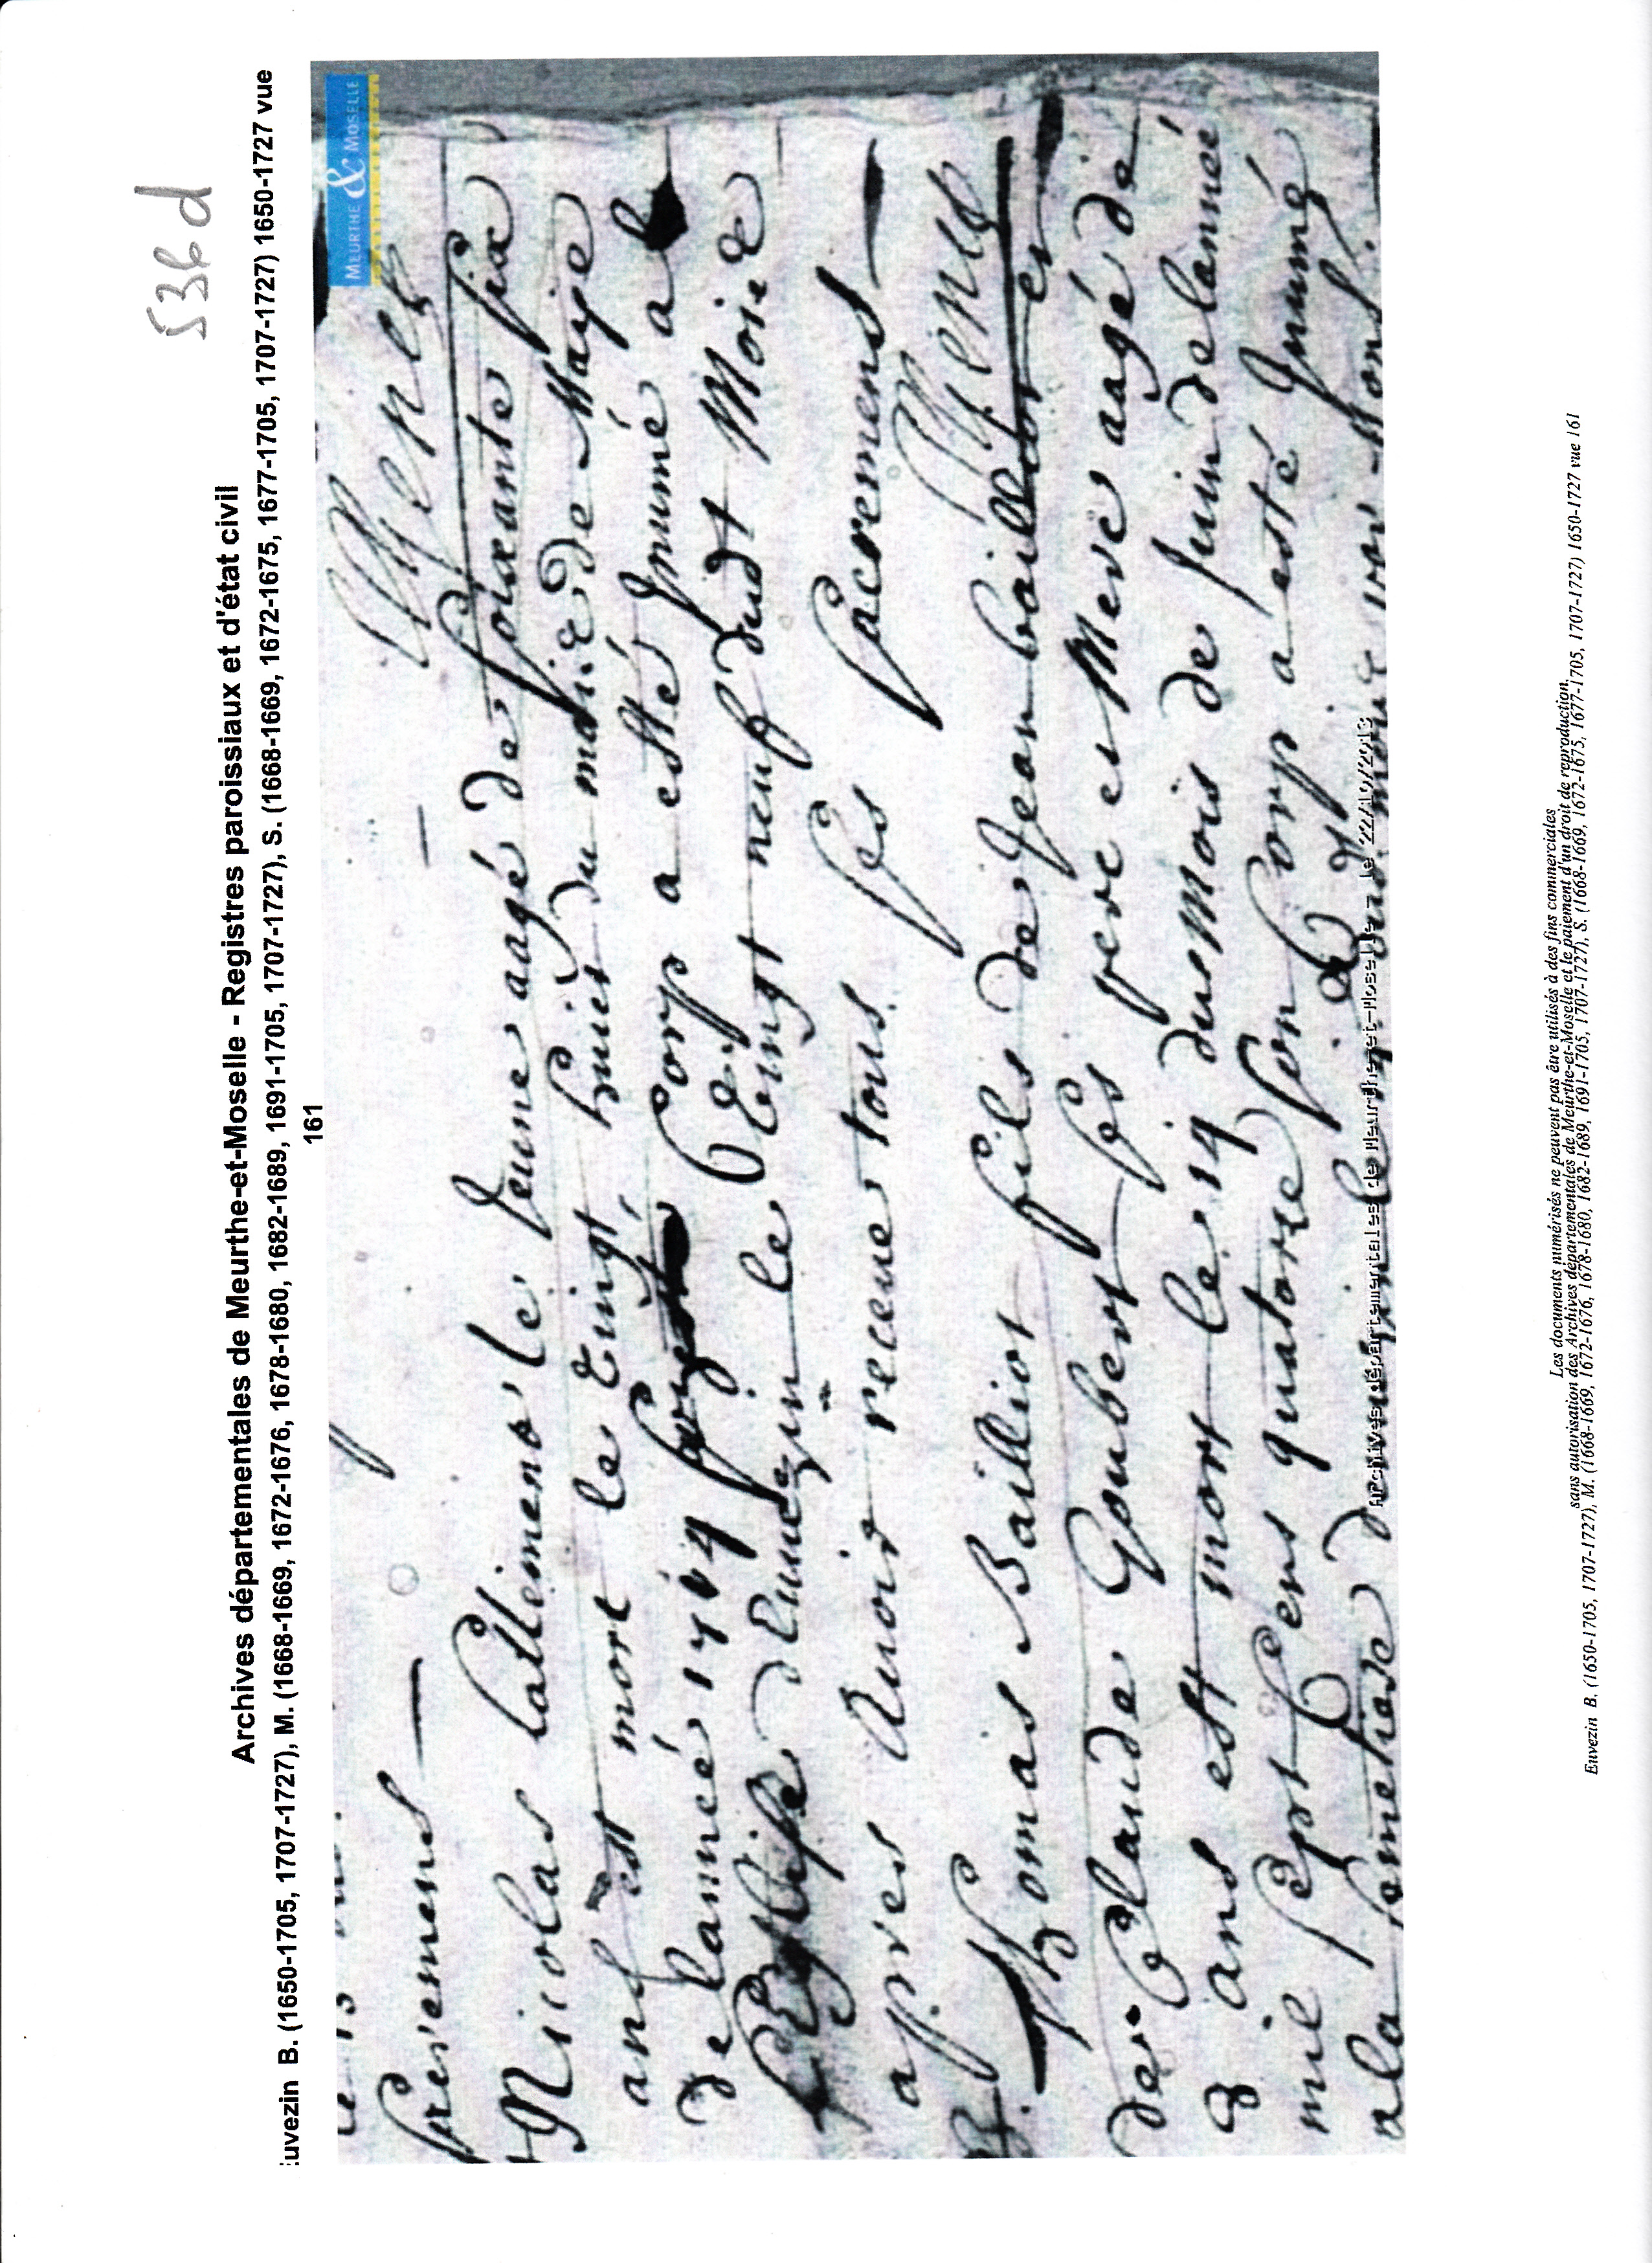 536d
Archives départementales de Meurthe-et-Moselle - Registres paroissiaux et d'état civil
Euvezin B. (1650-1705, 1707-1727), M. (1668-1669, 1672-1676, 1678-1680, 1682-1689, 1691-1705, 1707-1727), S. (1668-1669, 1672-1675, 1677-1705, 1707-1727) 1650-1727 vue
161
MEURTHE & MOSELLE
sacremens
Nicolas Lallemend le Jeune aagé de soixante six
ans est mort le vingt huict du mois de Maye
de lannée 1714 son Corp a esté Inumé a l
Eglise deuuezin le vingt neuf dudt Mois
apres auoir receue tous ses sacremens
Thomas Bailliot fils de Jean bailliot et
de Claude Goubert ses pere et Mere aagé de
8 ans est mort le 14 du mois de Juin de lanneé
mil sept cens quatorze son corp a esté Inumé
a la semetiere
Archives départementales de Meurthe-et-Moselle - le 22/10/2013
Les documents numérisés ne peuvent pas être utilisés à des fins commerciales
sans autorisation des Archives départementales de Meurthe-et-Moselle et le paiement d'un droit de reproduction.
Euvezin B. (1650-1705, 1707-1727), M. (1668-1669, 1672-1676, 1678-1680, 1682-1689, 1691-1705, 1707-1727), S. (1668-1669, 1672-1675, 1677-1705, 1707-1727) 1650-1727 vue 161